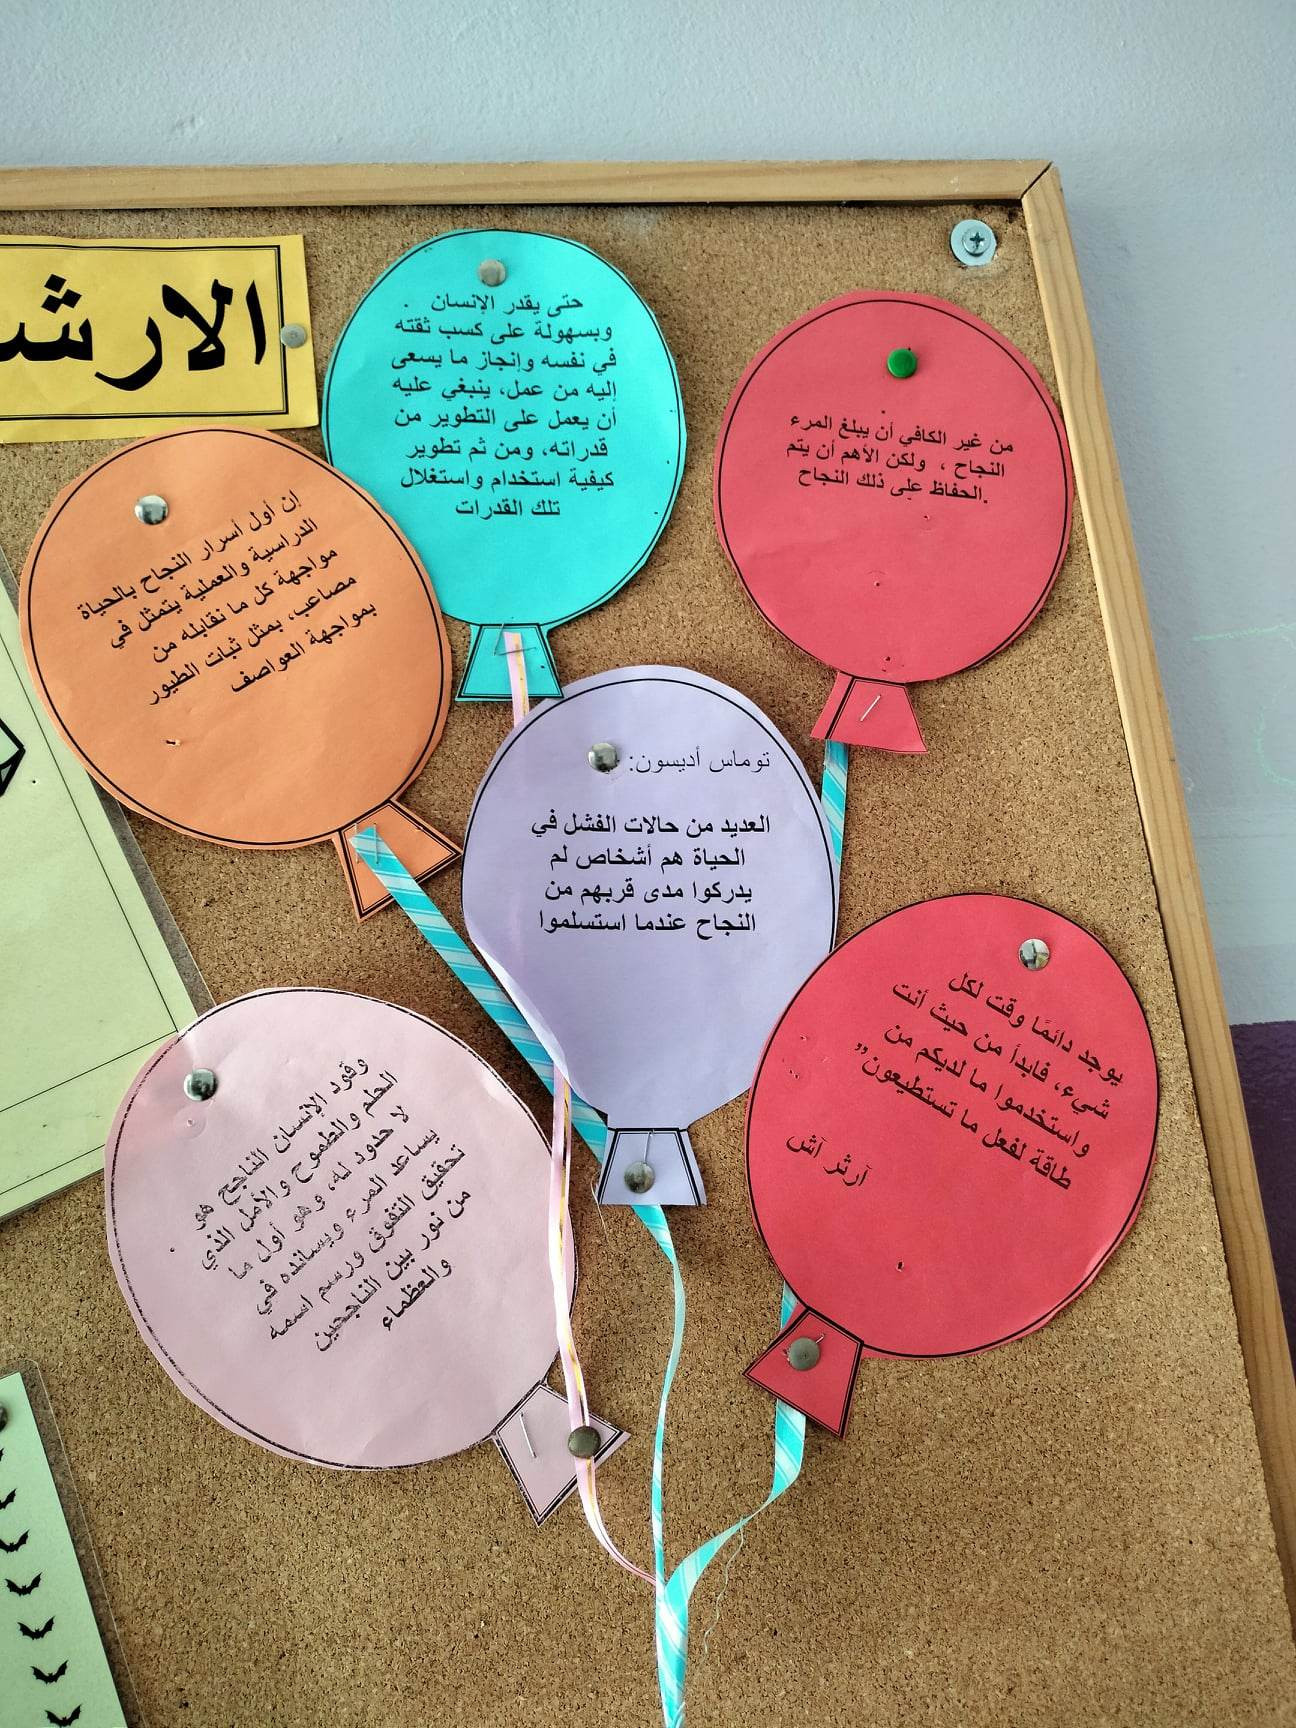 الارش
حتى يقدر الإنسان .
وبسهولة على كسب ثقته
في نفسه وإنجاز ما يسعى
إليه من عمل، ينبغي عليه
أن يعمل على التطوير من
قدراته، ومن ثم تطوير
كيفية استخدام واستغلال
تلك القدرات
من غير الكافي أن يبلغ المرء
النجاح ، ولكن الأهم أن يتم
الحفاظ على ذلك النجاح.
إن أول أسرار النجاح بالحياة
الدراسية والعملية يتمثل في
مواجهة كل ما نقابله من
مصاعب، بمثل ثبات الطيور
بمواجهة العواصف
توماس أديسون:
العديد من حالات الفشل في
الحياة هم أشخاص لم
يدركوا مدى قربهم من
النجاح عندما استسلموا
يوجد دائمًا وقت لكل
شيء، فابدأ من حيث أنت
واستخدموا ما لديكم من
طاقة لفعل ما تستطيعون”
آرثر آش
وقود الإنسان الناجح هو
الحلم والطموح والأمل الذي
لا حدود له، وهو أول ما
يساعد المرء ويسانده في
تحقيق التفوق ورسم اسمه
من نور بين الناجحين
والعظماء